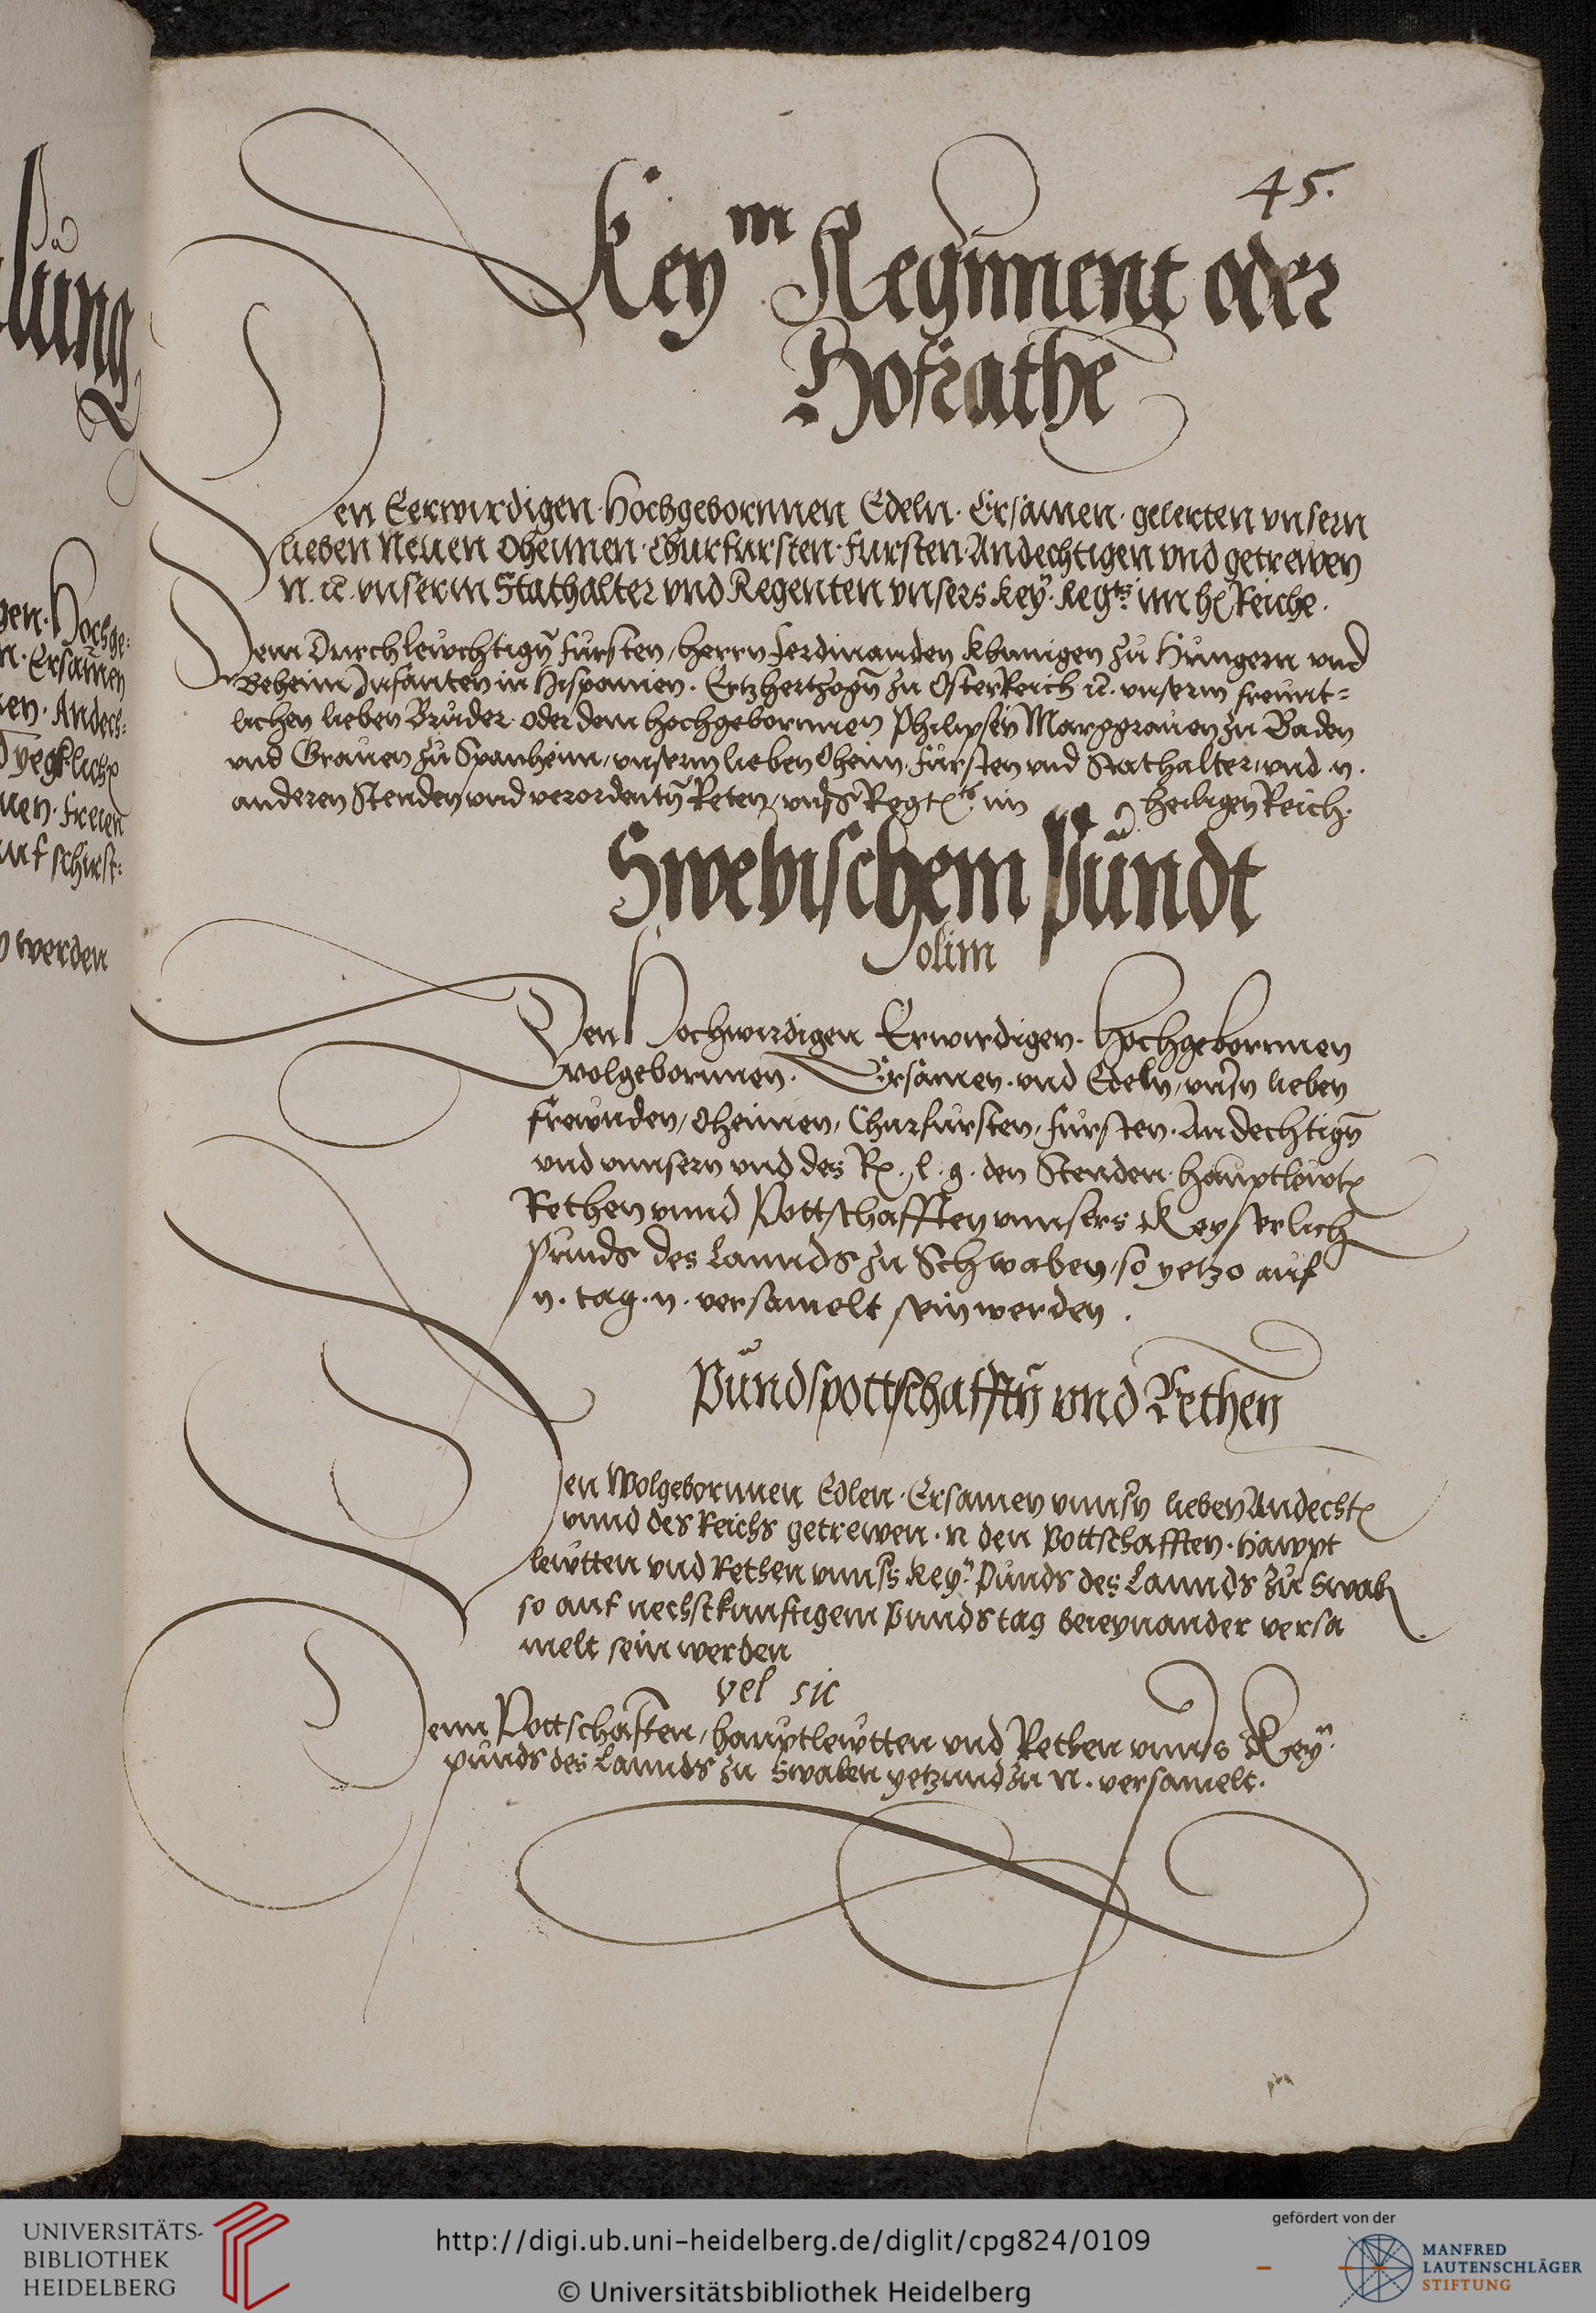 45.
Keyᵐ Regiment oder
Hofrathe
Den Eerwirdigen · Hochgebornnen Edeln · Ersamen · gelerten vnsern
lieben Neuen Oheimen · Churfursten · Fursten · Andechtigen vnd getrewen
N. ꝛc. vnserm Stathalter vnd Regenten vnsers Key. Regts im h Reiche.
Dem Durchleuchtigñ Fursten / herrn Ferdinanden Khunigen zu Hungern vnd
Beheim Infanten in Hispanien. Ertzhertzogñ zu Osterreich ꝛc. vnserm freunt=
lichen lieben Bruder oder dem hochgebornnen Philipsen Marggrauen zu Baden
vnd Grauen zu Spanheim / vnserm lieben Oheim, Fursten vnd Stathalter / vnd .n.
anderen Stenden vnd verordentñ Reten / vnsers Regts im heiligen Reich.
Swebischem Pundt
olim
Den Hochwirdigen Erwirdigen. Hochgebornnen
wolgebornnen. Ersamen. vnd Edeln / vnsn lieben
freunden / Oheimen / Churfursten / Fursten. Andechtigñ
vnd vnnsern vnd des R. l. g. den Stenden hauptleutt
Rethen vnnd Pottschafften vnnsers Keyserlich
punds des Lannds zu Schwaben / so yetzo auf
n. tag. n. versamelt sein werden.
Pundspottschafftñ vnd Rethen
Den Wolgebornnen Edlen · Ersamen vnnsn lieben Andecht
vnnd des Reichs getrewen. n den Pottschafften. Haupt
leutten vnd Rethen vnnss Keyn. Punds des Lannds zu Swab
so auf nechstkunftigem Pundstag beieynander versa
melt sein werden
vel sic
Denn Pottschafften / hauptleutten vnd Rethen vnnss Keyn.
punds des Lannds zu Swaben yetzund zu N. versamelt.
lung
gen. Hochge=
n. Ersamen
en. Andech=
yegklich
en. Freien
auf schirst=
werden
UNIVERSITÄTS-
BIBLIOTHEK
HEIDELBERG
http://digi.ub.uni-heidelberg.de/diglit/cpg824/0109
© Universitätsbibliothek Heidelberg
gefördert von der
MANFRED
LAUTENSCHLÄGER
STIFTUNG